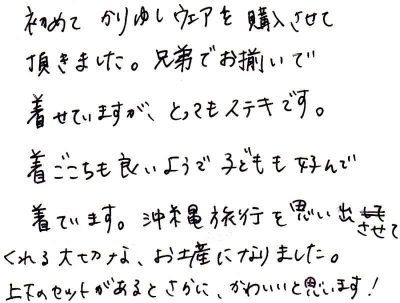 初めて かりゆしウェアを 購入させて
頂きました。兄弟でお揃いで
着せていますが、とってもステキです。
着ごこちも良いようで 子どもも 好んで
着ています。沖縄旅行を思い出させて
くれる 大切な、お土産になりました。
上下のセットがあるとさらに、かわいいと思います！